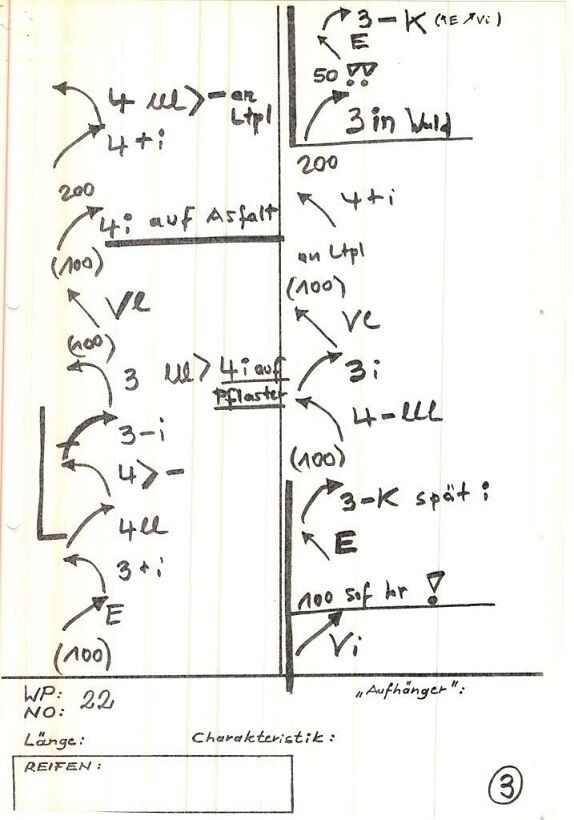 4 lll > - an
Ltpl
4+i
200
4i auf Asfalt
(100)
Vl
(100)
3 lll > 4i auf
Pflaster
3-i
4>-
4ll
3+i
E
(100)
3-K (↖E ↗Vi)
E
50 !!
3 in Wald
200
4+i
an Ltpl
(100)
Vl
3i
4-lll
(100)
3-K spät i
E
100 sof hr !
Vi
WP: 22
NO:
"Aufhänger":
Länge: Charakteristik:
REIFEN:
3